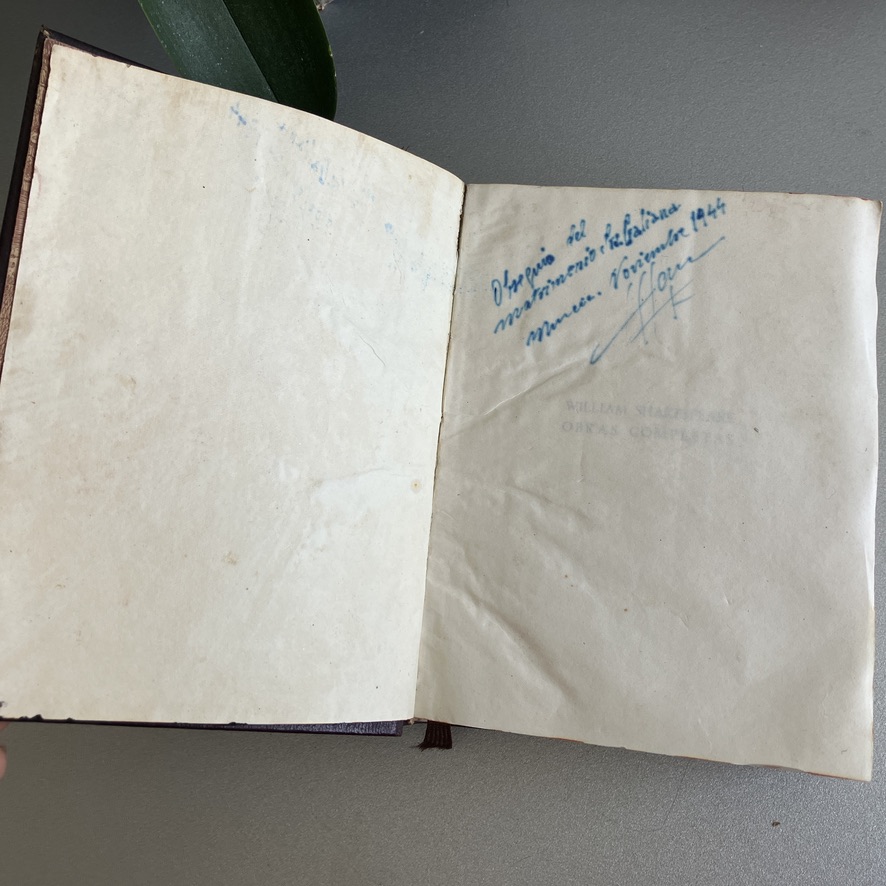 Obsequio del
matrimonio
Murcia. Noviembre 1944
WILLIAM SHAKESPEARE
OBRAS COMPLETAS